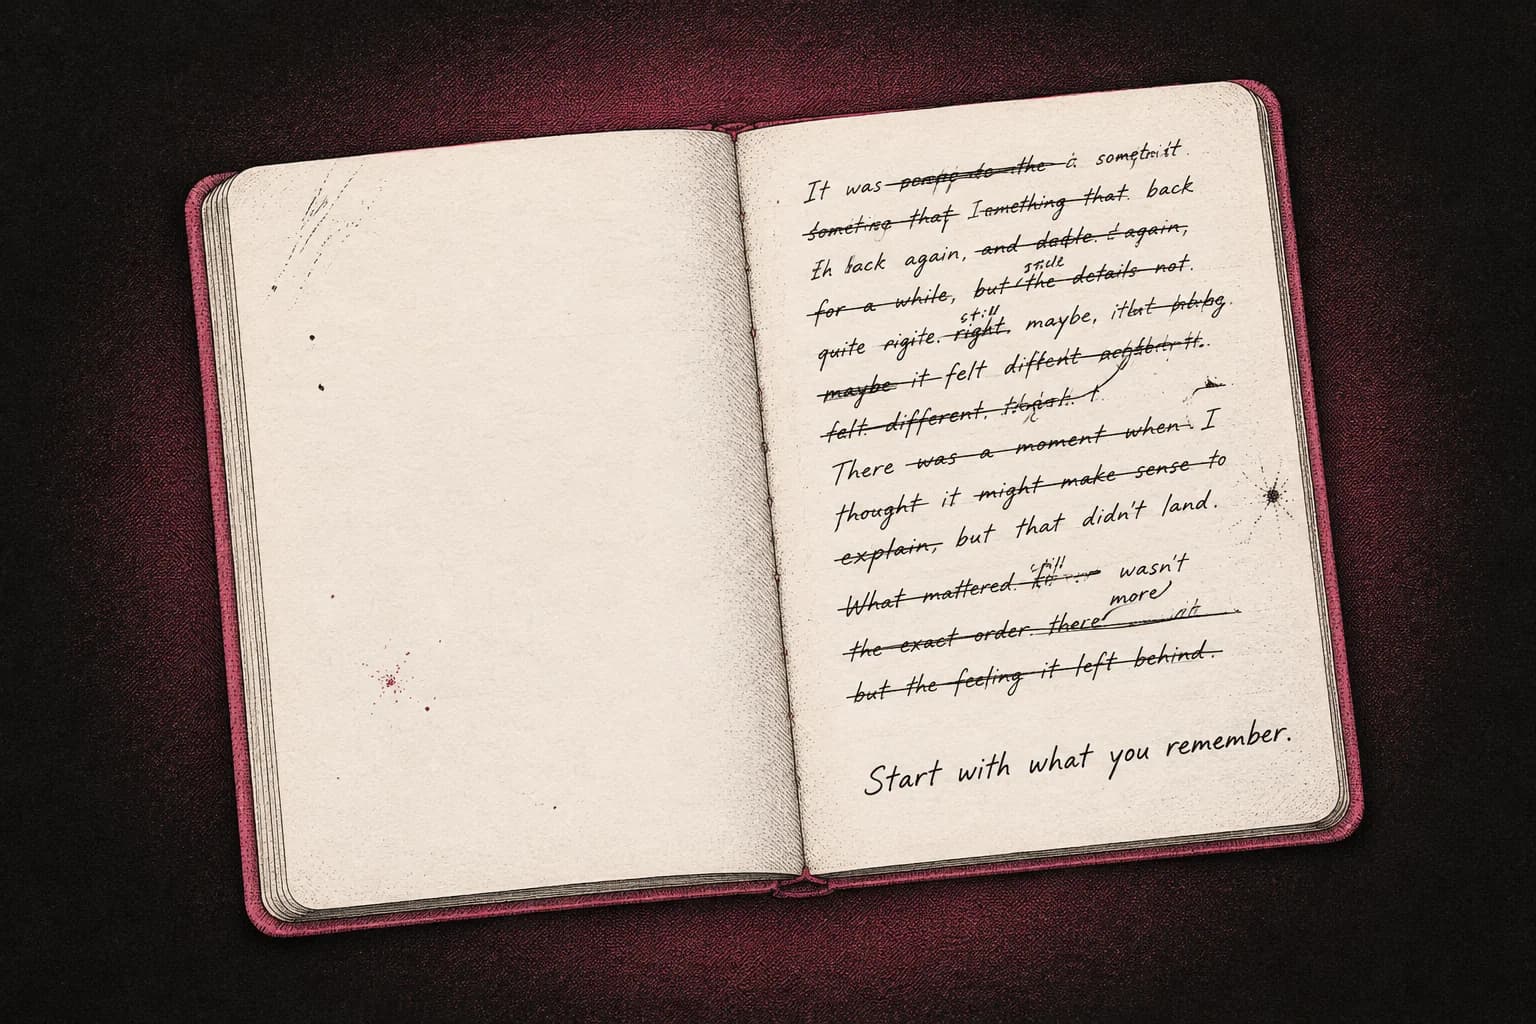 It was the
that something that back
back again, and again,
still
for a while, but the details not.
still
quite right, maybe,
maybe it felt
felt. different.
There was a moment when I
thought it might make sense to
explain, but that didn't land.
still
What mattered. wasn't
more
the exact order. there
but the feeling it left behind.
Start with what you remember.